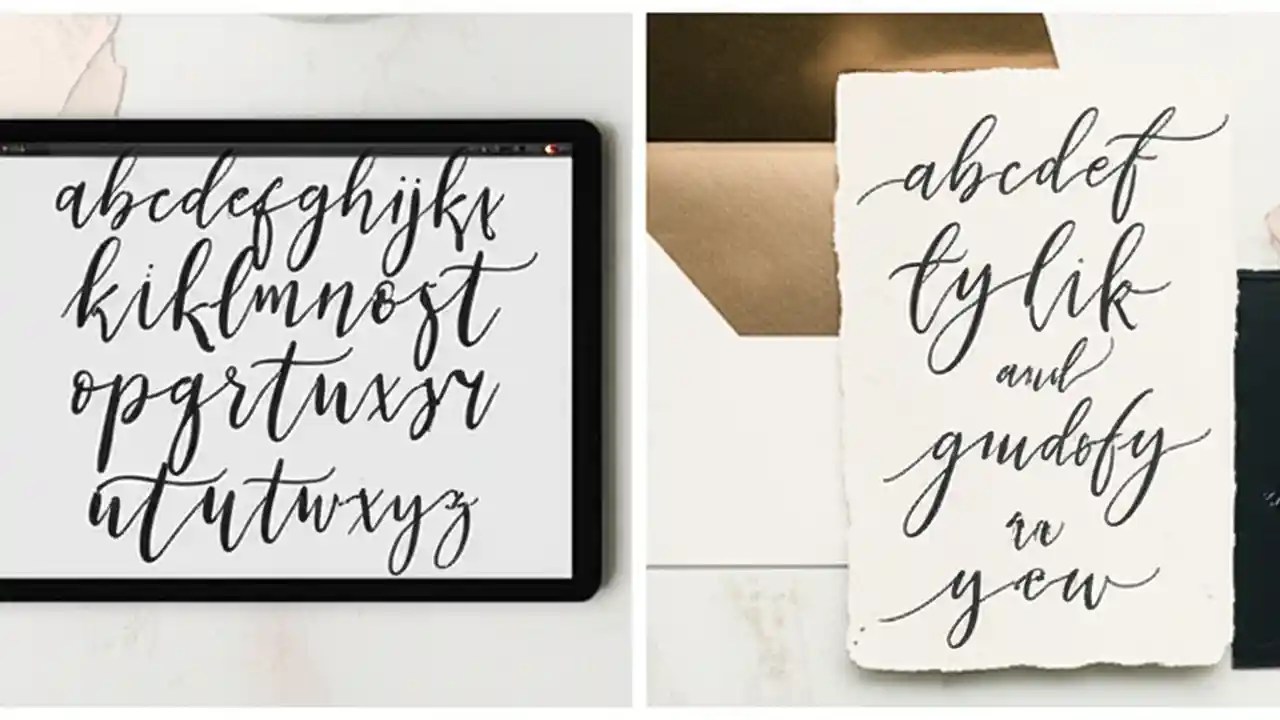 abcdefghijkx
kiklmnost
opgrtuxsr
ututwxyz
abcdef
tylik
and
gmdofy
yew